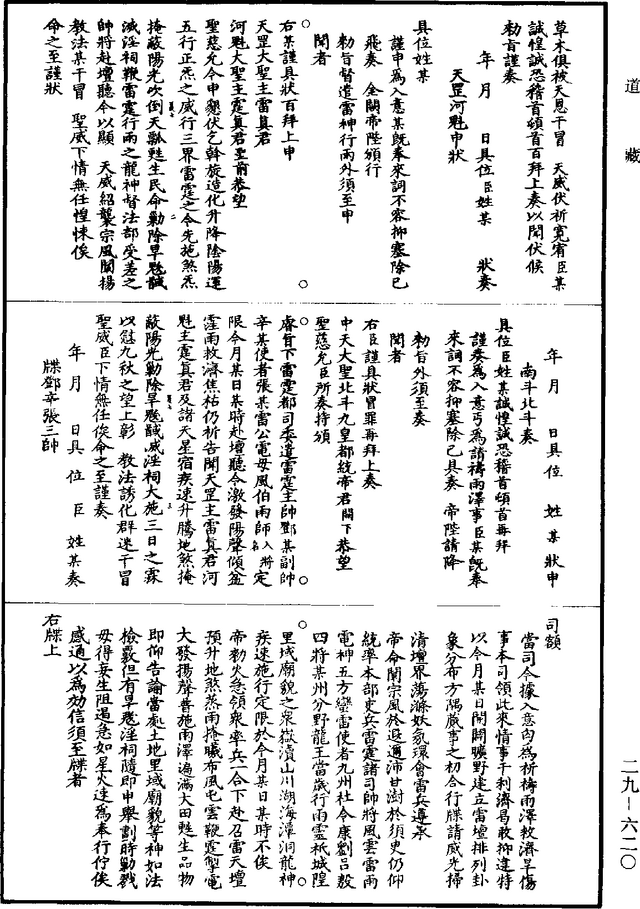 道藏
草木俱被天恩干冒　天威伏祈寬宥臣某
誠惶誠恐稽首頓首百拜上奏以聞伏候
勑旨謹奏
年　月　　日具位臣姓某　　狀奏
天罡河魁申狀
具位姓某
謹申為入意某既奉來詞不容抑塞除已
飛奏　金闕帝陛頒行
勑旨督遣雷神行雨外須至申
聞者
右某謹具狀百拜上申
天罡大聖主雷真君
河魁大聖主霆真君聖前恭望
聖慈允令申懇伏乞斡旋造化升降陰陽運
五行正炁之威行三界雷霆之令先施煞炁
掩蔽陽光吹倒天瓢甦生民命勦除旱魃馘
滅淫祠鞭雷霆行雨之龍神督法部受差之
帥將赴壇聽令以顯　天威紹襲宗風闡揚
教法某干冒　聖威下情無任惶悚俟
命之至謹狀
年　月　　日具位　姓　某　狀申
南斗北斗奏
具位臣姓某誠惶誠恐稽首頓首再拜
謹奏為入意丐為請禱雨澤事臣某既奉
來詞不容抑塞除已具奏　帝陛請降
勑旨外須至奏
聞者
右臣謹具狀冒罪再拜上奏
中天大聖北斗九皇都統帝君闕下恭望
聖慈允臣所奏特頒
睿旨下雷霆都司委遣雷霆主帥鄧某副帥
辛某使者張某雷公電母風伯雨師入將名定
限今月某日某時赴壇聽令激發陽聲傾盆
霔雨救濟焦枯仍祈告聞天罡主雷真君河
魁主霆真君及諸天星宿疾速升騰地煞掩
蔽陽光勦除旱魃馘滅淫祠大施三日之霖
以慰九秋之望上彰　教法誘化群迷干冒
聖威臣下情無任俟命之至謹奏
年　月　　日具　位　臣　姓某奏
牒鄧辛張三帥
司額
當司今據入意向為祈禱雨澤救濟旱傷
事本司領此來情事干利濟曷敢抑違特
以今月某日開闢曠野建立雷壇排列卦
象分布方隅歲事之初合行牒請威光掃
清壇界蕩滌妖氛環會雷兵遵承
帝命闡宗風於遐邇沛甘澍於須臾仍仰
統率本部吏兵雷霆諸司帥將風雲雷雨
電神五方蠻雷使者九州杜令康劉呂殷
四將某州分野龍王當歲行雨靈祇城隍
里域廟貌之眾嶽瀆山川湖海潭洞龍神
疾速施行定限於今月某日某時不俟
帝勑火急領眾率兵一合下赴召雷天壇
預升地煞蒸雨擔曦布風屯雲鞭霆掣電
大發揚聲普施雨澤遍滿大田甦生品物
即仰告諭當處土地里域廟貌等神如法
檢覈但有旱魃淫祠隨即申舉劃時勦戮
毋得妄生阻遏急如星火速為奉行佇俟
感通以為効信須至牒者
右牒上
二九—六二〇